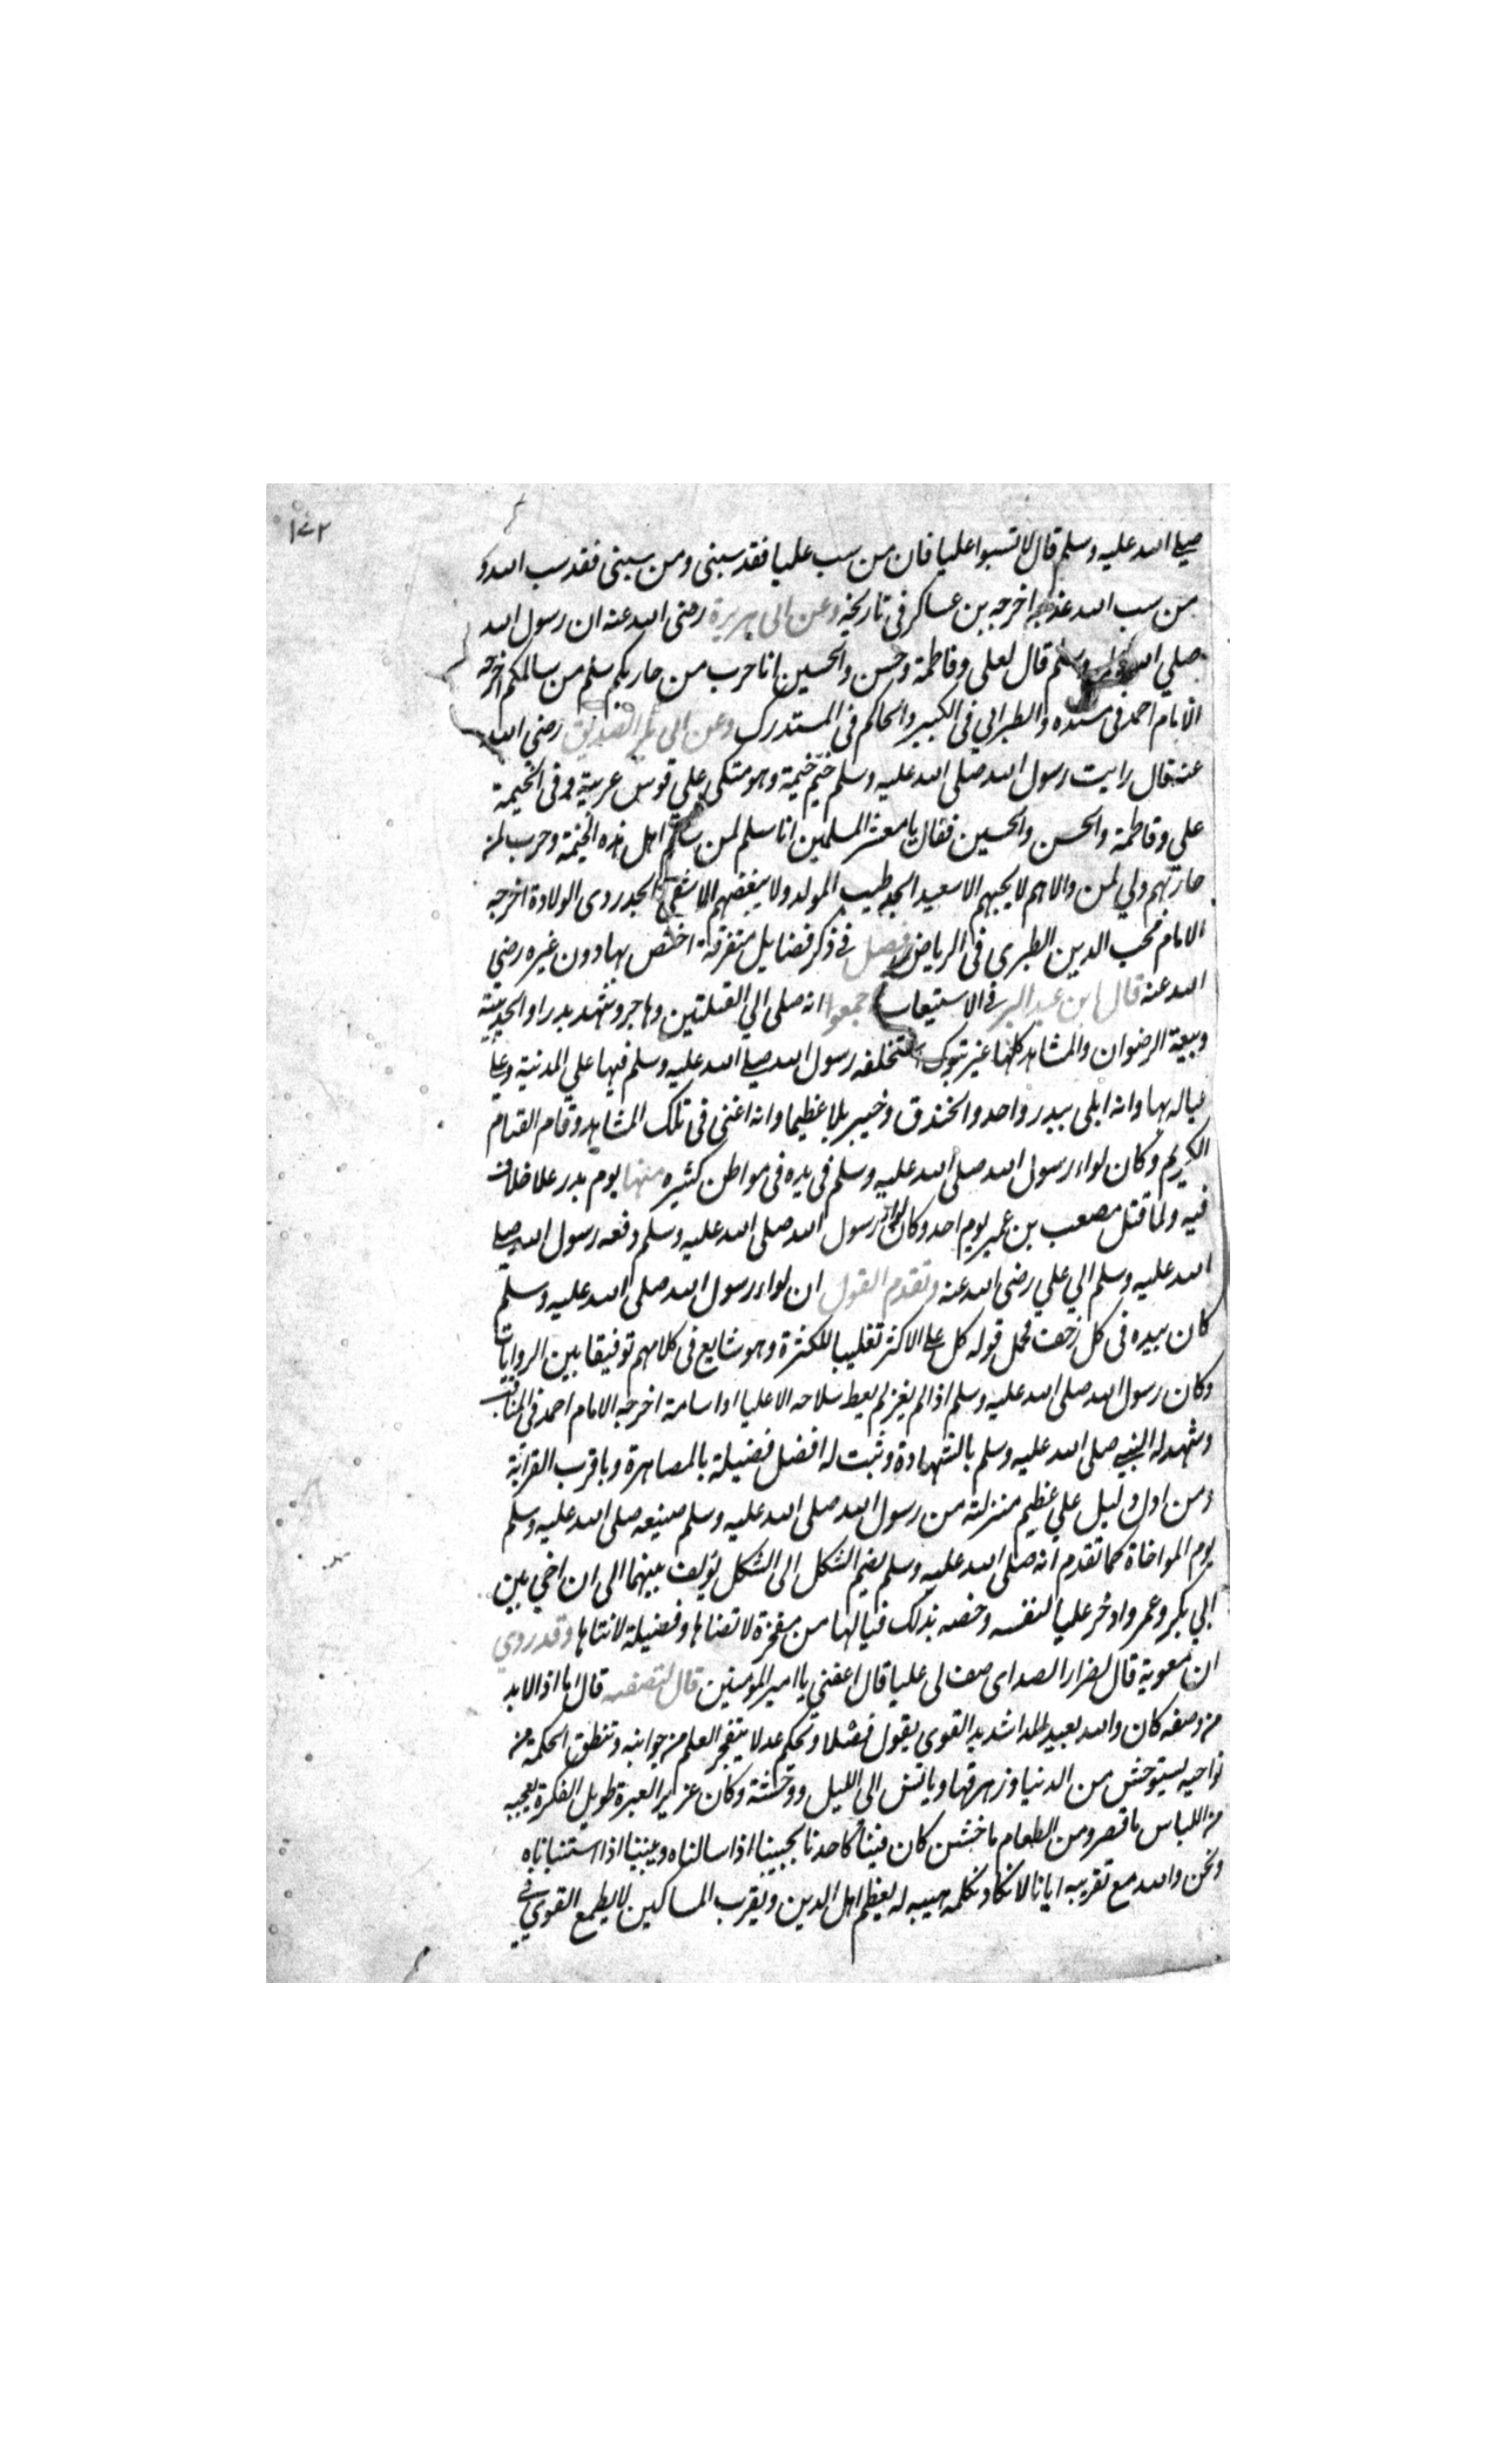 ١٧٢
صلى الله عليه وسلم قال لا تسبوا عليا فان من سب عليا فقد سبنى ومن سبنى فقد سب الله و
من سب الله عذبه اخرجه بن عساكر فى تاريخه وعن ابى هريرة رضى الله عنه ان رسول الله
صلي الله عليه وسلم قال لعلى وفاطمة وحسن والحسين انا حرب من حاربكم سلم من سالمكم اخرجه
الامام احمد فى مسنده والطبرانى فى الكبير والحاكم فى المستدرك وعن ابى بكر الصديق رضى الله
عنه قال رايت رسول الله صلى الله عليه وسلم خيّم خيمة وهو متكى علي قوس عربية وفى الخيمة
علي وفاطمة والحسن والحسين فقال يا معشر المسلمين انا سلم لمن سالم اهل هذه الخيمة وحرب لمن
حاربهم ولي لمن والاهم لا يحبهم الا سعيد الجد طيب المولد ولا يبغضهم الا شقى الجد ردى الولادة اخرجه
الامام محب الدين الطبرى فى الرياض فصل فى ذكر فضايل متفرقة اختص بها دون غيره رضي
الله عنه قال ابن عبد البر فى الاستيعاب اجمعوا انه صلى الي القبلتين وهاجر وشهد بدرا والحديبية
وبيعة الرضوان والمشاهد كلها غير تبوك استخلفه رسول الله صلى الله عليه وسلم فيها علي المدنية وعلى
عياله بها وانه ابلى ببدر واحد والخندق وخيبر بلا عظيما وانه اغنى فى تلك المشاهد وقام القيام
الكريم وكان لواء رسول الله صلى الله عليه وسلم فى يده فى مواطن كثيره منها يوم بدر علا خلاف
فيه ولما قتل مصعب بن عمير يوم احد وكان لواء رسول الله صلى الله عليه وسلم دفعه رسول الله صلى
الله عليه وسلم الي علي رضى الله عنه وتقدم القول ان لواء رسول الله صلى الله عليه وسلم
كان بيده فى كل زحف فحمل قوله كل على الاكثر تغليبا للكثرة وهو شايع فى كلامهم توفيقا بين الروايات
وكان رسول الله صلى الله عليه وسلم اذا لم يغز لم يعط سلاحه الا عليا او اسامة اخرجه الامام احمد فى المناقب
وشهد له النبى صلى الله عليه وسلم بالشهادة وثبت له افضل فضيلة بالمصاهرة وباقرب القرابة
ومن ادل دليل علي عظيم منزلته من رسول الله صلى الله عليه وسلم صنيعه صلى الله عليه وسلم
يوم المواخاة كما تقدم انه صلى الله عليه وسلم يضم الشكل الى الشكل يؤلف بينهما الى ان اخي بين
ابي بكر وعمر وادخر عليا لنفسه وخصه بذلك فيا لها من مفخرة لا تضاها وفضيلة لا تتاها وقد روي
ان معوية قال لضرار الصداى صف لى عليا قال اعفني يا امير المؤمنين قال لتصفنه قال اما اذا لا بد
من وصفه كان والله بعيد المدا شديد القوى يقول فضلا ويحكم عدلا يتفجر العلم من جوانبه وتنطق الحكمة من
نواحيه يستوحش من الدنيا وزهرتها ويانس الى الليل ووحشته وكان غزير العبرة طويل الفكرة يعجبه
من اللباس ما قصر ومن الطعام ما خشن كان فينا كاحدنا يجيبنا اذا سالناه وينبينا اذا استنباناه
ونحن والله مع تقريبه ايانا لا نكاد نكلمه هيبه له يعظم اهل الدين ويقرب المساكين لا يطمع القوي فى